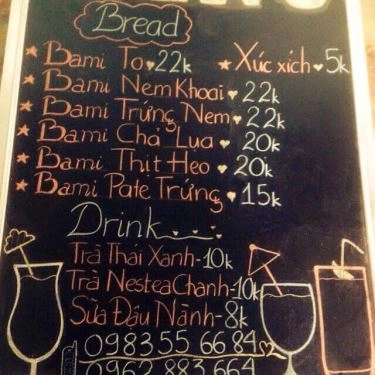 Bread
Bami To 22k
Xúc xích 5k
Bami Nem Khoai 22k
Bami Trứng Nem 22k
Bami Chả Lua 20k
Bami Thịt Heo 20k
Bami Pate Trứng 15k
Drink
Trà Thái Xanh-10k
Trà Nestea Chanh-10k
Sữa Đậu Nành-8k
0983 55 66 84
0962 883 664